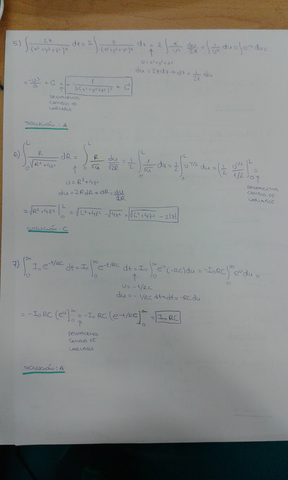 5) ∫ 2x/(x²+y²+z²)⁴ dx = 2 ∫ x/(x²+y²+z²)⁴ dx = 2 ∫ x/u⁴ du/2x = ∫ 1/u⁴ du = ∫ u⁻⁴ du =
u = x²+y²+z²
du = 2x dx → dx = 1/2x du
+ C = - 1/3(x²+y²+z²)³ + C
DESHACEMOS
CAMBIO DE
VARIABLE
SOLUCIÓN: A
6) ∫ R/√(R²+4z²) dR = ∫ R/√u du/2R = 1/2 ∫ 1/√u du = 1/2 ∫ u^(-1/2) du =
u = R²+4z²
du = 2R dR → dR = du/2R
DESHACEMOS
CAMBIO DE
VARIABLE
= √(R²+4z²) |₀ᴸ = √(L²+4z²) - √(4z²) = √(L²+4z²) - 2|z|
SOLUCIÓN: C
7) ∫₀^∞ I₀ e^(-t/RC) dt = I₀ ∫₀^∞ e^(-t/RC) dt = I₀ ∫₀^∞ e^u (-RC) du = -I₀RC ∫₀^∞ e^u du =
u = -t/RC
du = -1/RC dt → dt = -RC du
= -I₀ RC (e^u)₀^∞ = -I₀ RC (e^(-t/RC))₀^∞ = I₀ RC
DESHACEMOS
CAMBIO DE
VARIABLE
SOLUCIÓN: A